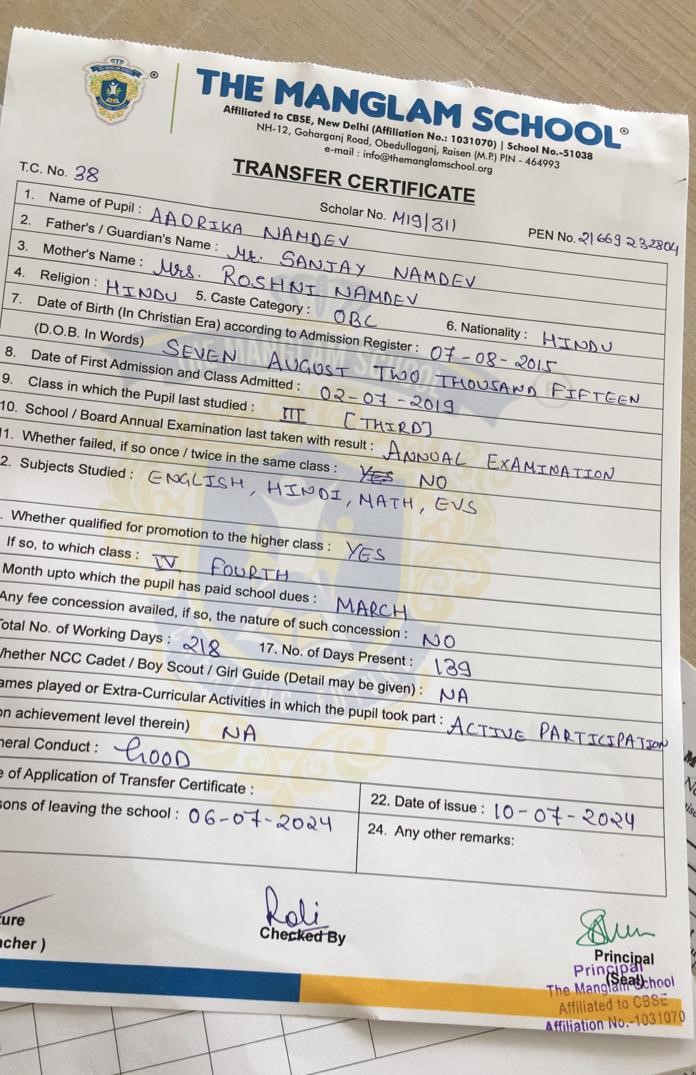 THE MANGLAM SCHOOL®
Affiliated to CBSE, New Delhi (Affiliation No.: 1031070) | School No.-51038
NH-12, Goharganj Road, Obedullaganj, Raisen (M.P.) PIN - 464993
e-mail : info@themanglamschool.org
TRANSFER CERTIFICATE
T.C. No. 38
Scholar No. M19/311
PEN No. 21669232804
1. Name of Pupil : AADRIKA NAMDEV
2. Father's / Guardian's Name : Mr. SANJAY NAMDEV
3. Mother's Name : Mrs. ROSHNI NAMDEV
4. Religion : HINDU 5. Caste Category : OBC 6. Nationality : HINDU
7. Date of Birth (In Christian Era) according to Admission Register : 07-08-2015
(D.O.B. In Words) SEVEN AUGUST TWO THOUSAND FIFTEEN
8. Date of First Admission and Class Admitted : 02-07-2019
9. Class in which the Pupil last studied : III [THIRD]
10. School / Board Annual Examination last taken with result : ANNUAL EXAMINATION
1. Whether failed, if so once / twice in the same class : YES NO
2. Subjects Studied : ENGLISH, HINDI, MATH, EVS
. Whether qualified for promotion to the higher class : YES
If so, to which class : IV FOURTH
Month upto which the pupil has paid school dues : MARCH
Any fee concession availed, if so, the nature of such concession : NO
otal No. of Working Days : 218 17. No. of Days Present : 139
hether NCC Cadet / Boy Scout / Girl Guide (Detail may be given) : NA
ames played or Extra-Curricular Activities in which the pupil took part : ACTIVE PARTICIPATION
on achievement level therein) NA
neral Conduct : GOOD
e of Application of Transfer Certificate :
22. Date of issue : 10-07-2024
sons of leaving the school : 06-07-2024
24. Any other remarks:
Roli
ture
Checked By
acher )
Principal
(Seal)
Principal
The Manglam School
Affiliated to CBSE
Affiliation No.-1031070